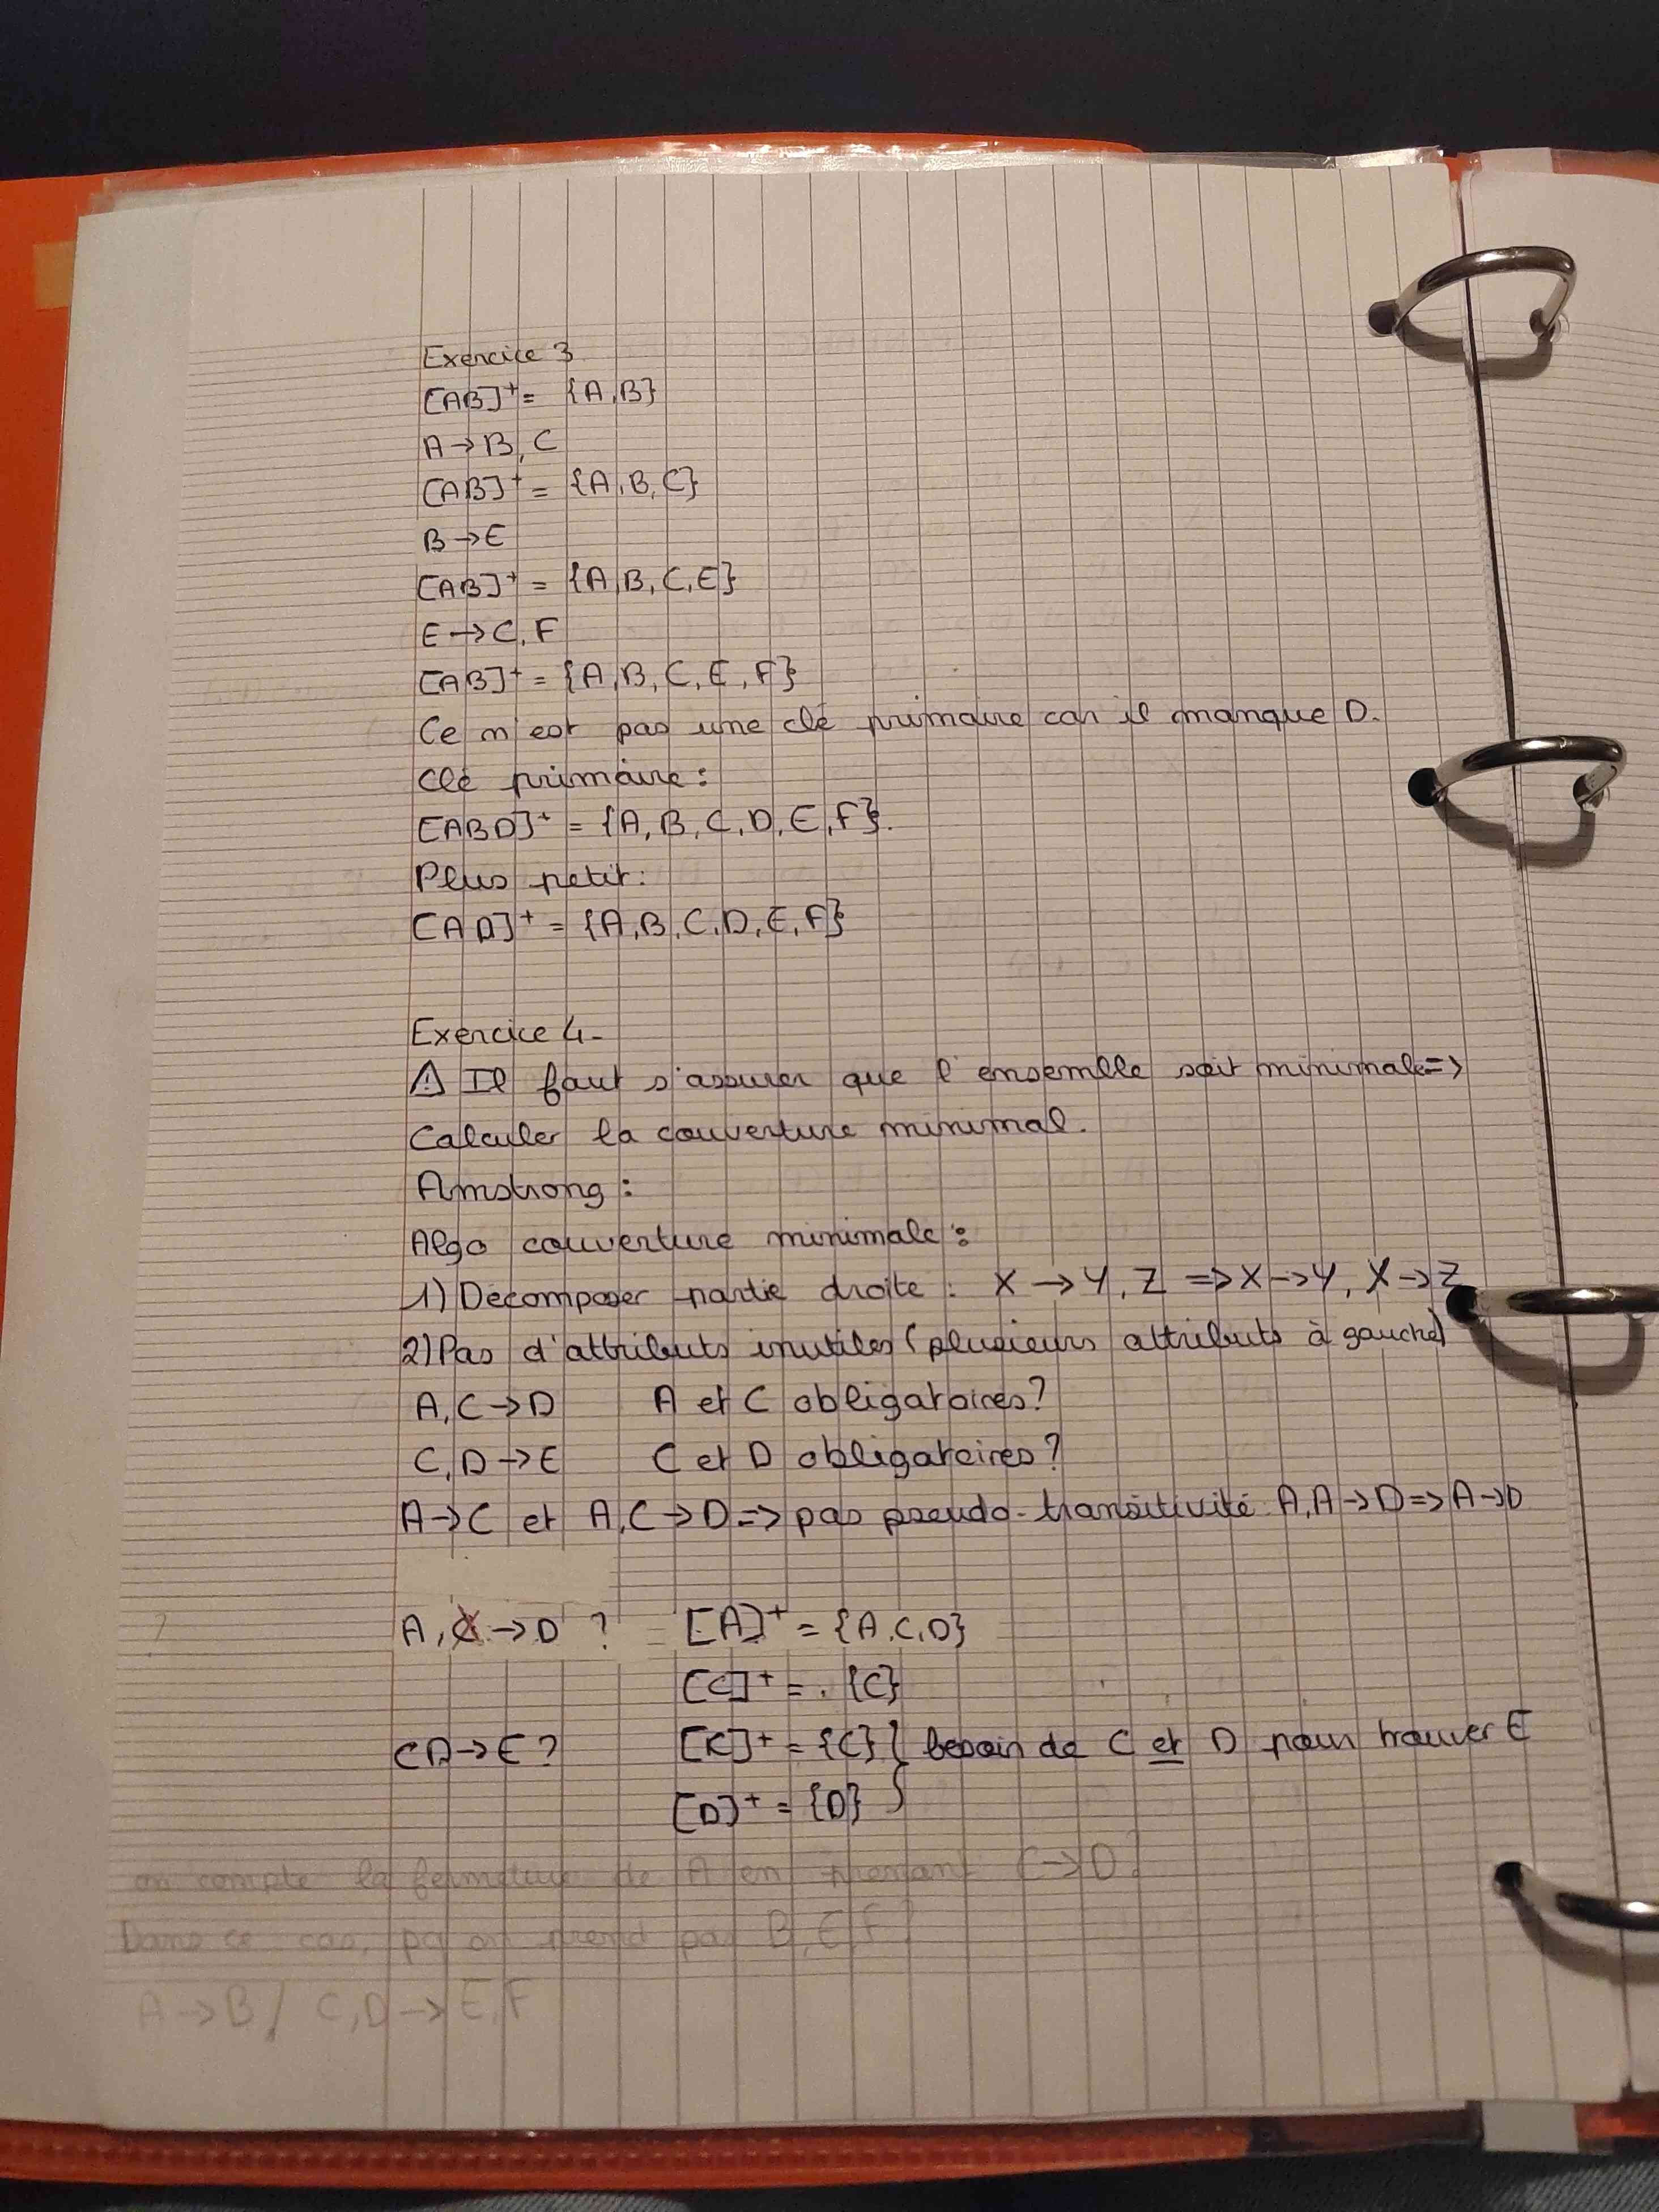 Exercice 3
[AB]⁺ = {A,B}
A → B, C
[AB]⁺ = {A,B,C}
B → E
[AB]⁺ = {A,B,C,E}
E → C, F
[AB]⁺ = {A,B,C,E,F}
Ce n'est pas une clé primaire car il manque D.
Clé primaire :
[ABD]⁺ = {A,B,C,D,E,F}.
Plus petit :
[AD]⁺ = {A,B,C,D,E,F}
Exercice 4-
⚠ Il faut s'assurer que l'ensemble soit minimale =>
Calculer la couverture minimal.
Amstrong :
Algo couverture minimale :
1) Décomposer partie droite : X → Y, Z => X → Y, X → Z
2) Pas d'attributs inutiles (plusieurs attributs à gauche)
A, C → D A et C obligatoires ?
C, D → E C et D obligatoires ?
A → C et A, C → D => pas pseudo-transitivité A, A → D => A → D
A, C → D ? [A]⁺ = {A,C,D}
[C]⁺ = {C}
CD → E ? [C]⁺ = {C} } besoin de C et D pour trouver E
[D]⁺ = {D}
on compte la fermeture de A en prenant C → D ?
Dans ce cas, pq on prend pas B, E, F ?
A → B / C, D → E, F